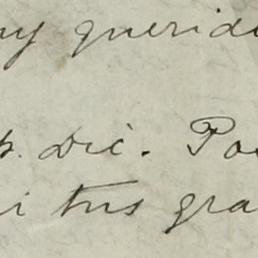 muy querid
p. Dic. Po
i tus gra